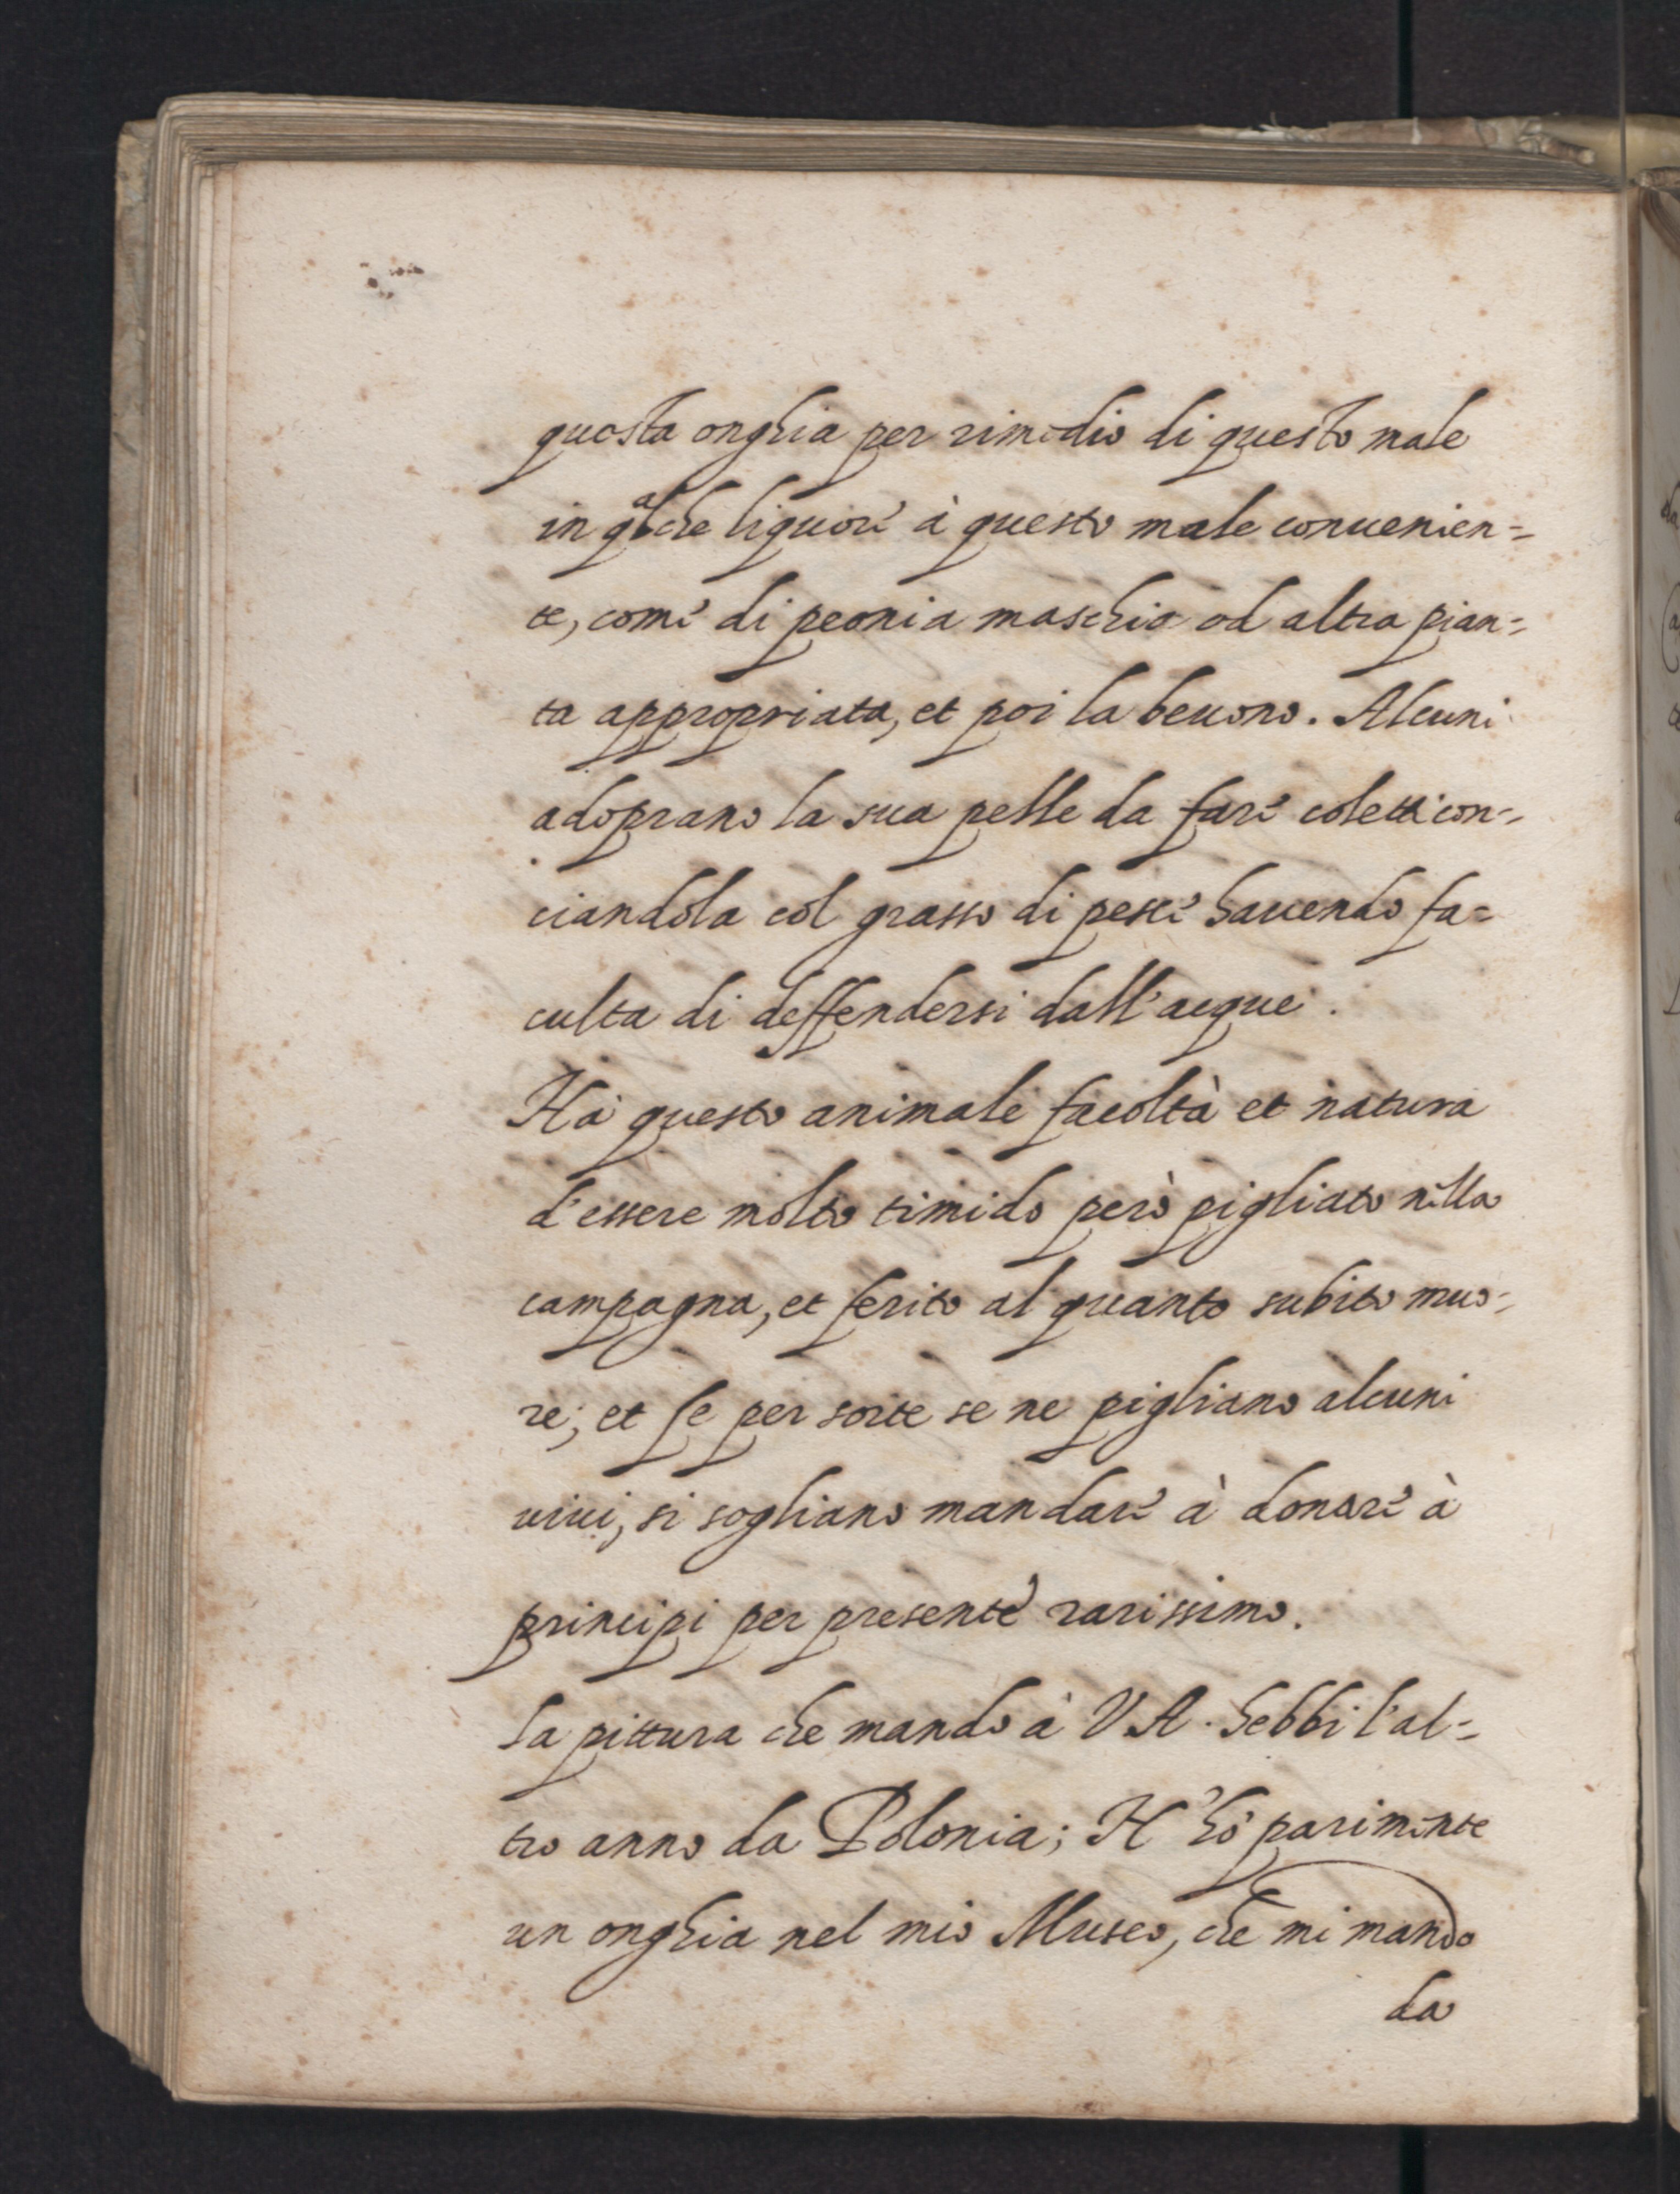 questa onghia per rimedio di questo male
in qalche liquore à questo male conuenien=
te, come di peonia maschio od altra pian=
ta appropriata, et poi la beuono. Alcuni
adoprano la sua pelle da fare coletti con=
ciandola col grasso di pesce hauendo fa=
culta di deffendersi dall'acque.
Hà questo animale facoltà et natura
d'essere molto timido però pigliato nella
campagna, et ferito al quanto subito muo=
re; et se per sorte se ne pigliano alcuni
uiui, si sogliano mandare à donare à
principi per presente rarissimo.
La pittura che mando à V A. hebbi l'al=
tro anno da Polonia; H' hò parimente
un onghia nel mio Museo, che mi mando
da